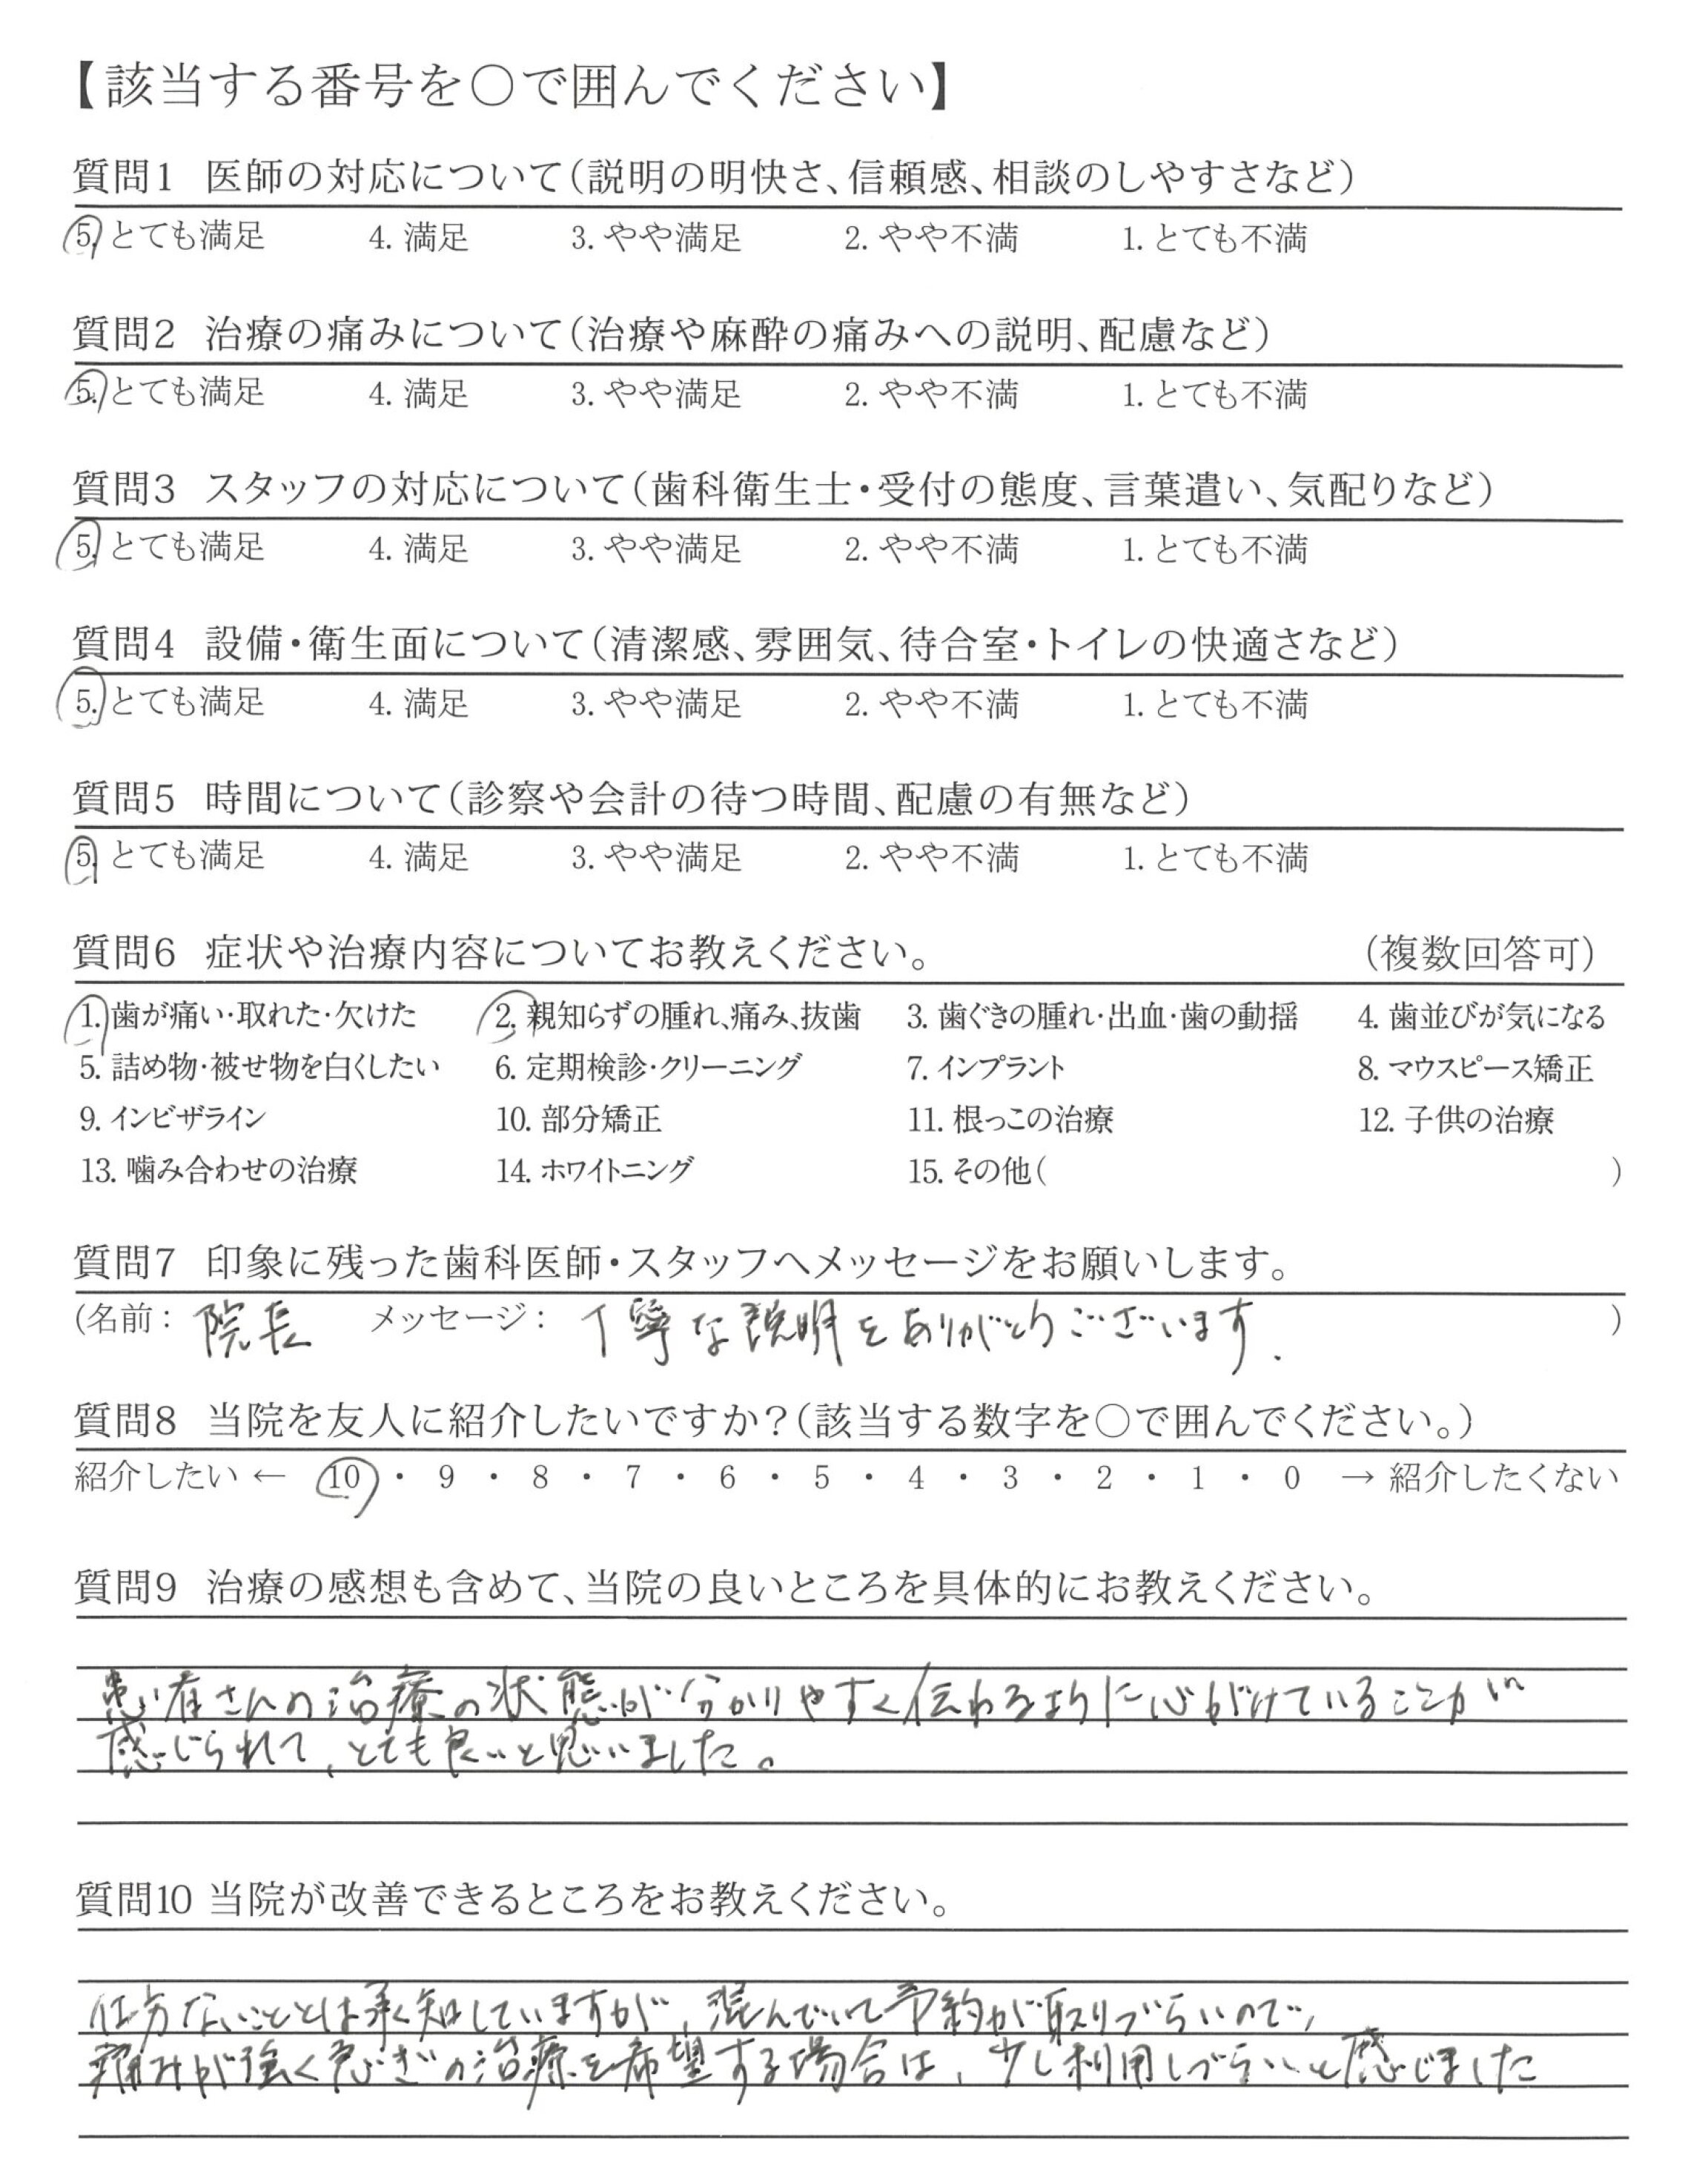 【該当する番号を〇で囲んでください】
質問1 医師の対応について(説明の明快さ、信頼感、相談のしやすさなど)
5. とても満足 4. 満足 3. やや満足 2. やや不満 1. とても不満
質問2 治療の痛みについて(治療や麻酔の痛みへの説明、配慮など)
5. とても満足 4. 満足 3. やや満足 2. やや不満 1. とても不満
質問3 スタッフの対応について(歯科衛生士・受付の態度、言葉遣い、気配りなど)
5. とても満足 4. 満足 3. やや満足 2. やや不満 1. とても不満
質問4 設備・衛生面について(清潔感、雰囲気、待合室・トイレの快適さなど)
5. とても満足 4. 満足 3. やや満足 2. やや不満 1. とても不満
質問5 時間について(診察や会計の待つ時間、配慮の有無など)
5. とても満足 4. 満足 3. やや満足 2. やや不満 1. とても不満
質問6 症状や治療内容についてお教えください。 (複数回答可)
1. 歯が痛い・取れた・欠けた 2. 親知らずの腫れ、痛み、抜歯 3. 歯ぐきの腫れ・出血・歯の動揺 4. 歯並びが気になる
5. 詰め物・被せ物を白くしたい 6. 定期検診・クリーニング 7. インプラント 8. マウスピース矯正
9. インビザライン 10. 部分矯正 11. 根っこの治療 12. 子供の治療
13. 噛み合わせの治療 14. ホワイトニング 15. その他( )
質問7 印象に残った歯科医師・スタッフへメッセージをお願いします。
(名前: 院長 メッセージ: 丁寧な説明をありがとうございます. )
質問8 当院を友人に紹介したいですか?(該当する数字を〇で囲んでください。)
紹介したい ← 10 ・ 9 ・ 8 ・ 7 ・ 6 ・ 5 ・ 4 ・ 3 ・ 2 ・ 1 ・ 0 → 紹介したくない
質問9 治療の感想も含めて、当院の良いところを具体的にお教えください。
患者さんの治療の状態が分かりやすく伝わるように心がけていることが
感じられて、とても良いと思いました。
質問10 当院が改善できるところをお教えください。
仕方ないこととは承知していますが、混んでいて予約が取りづらいので、
痛みが強く急ぎの治療を希望する場合は、少し利用しづらいと感じました